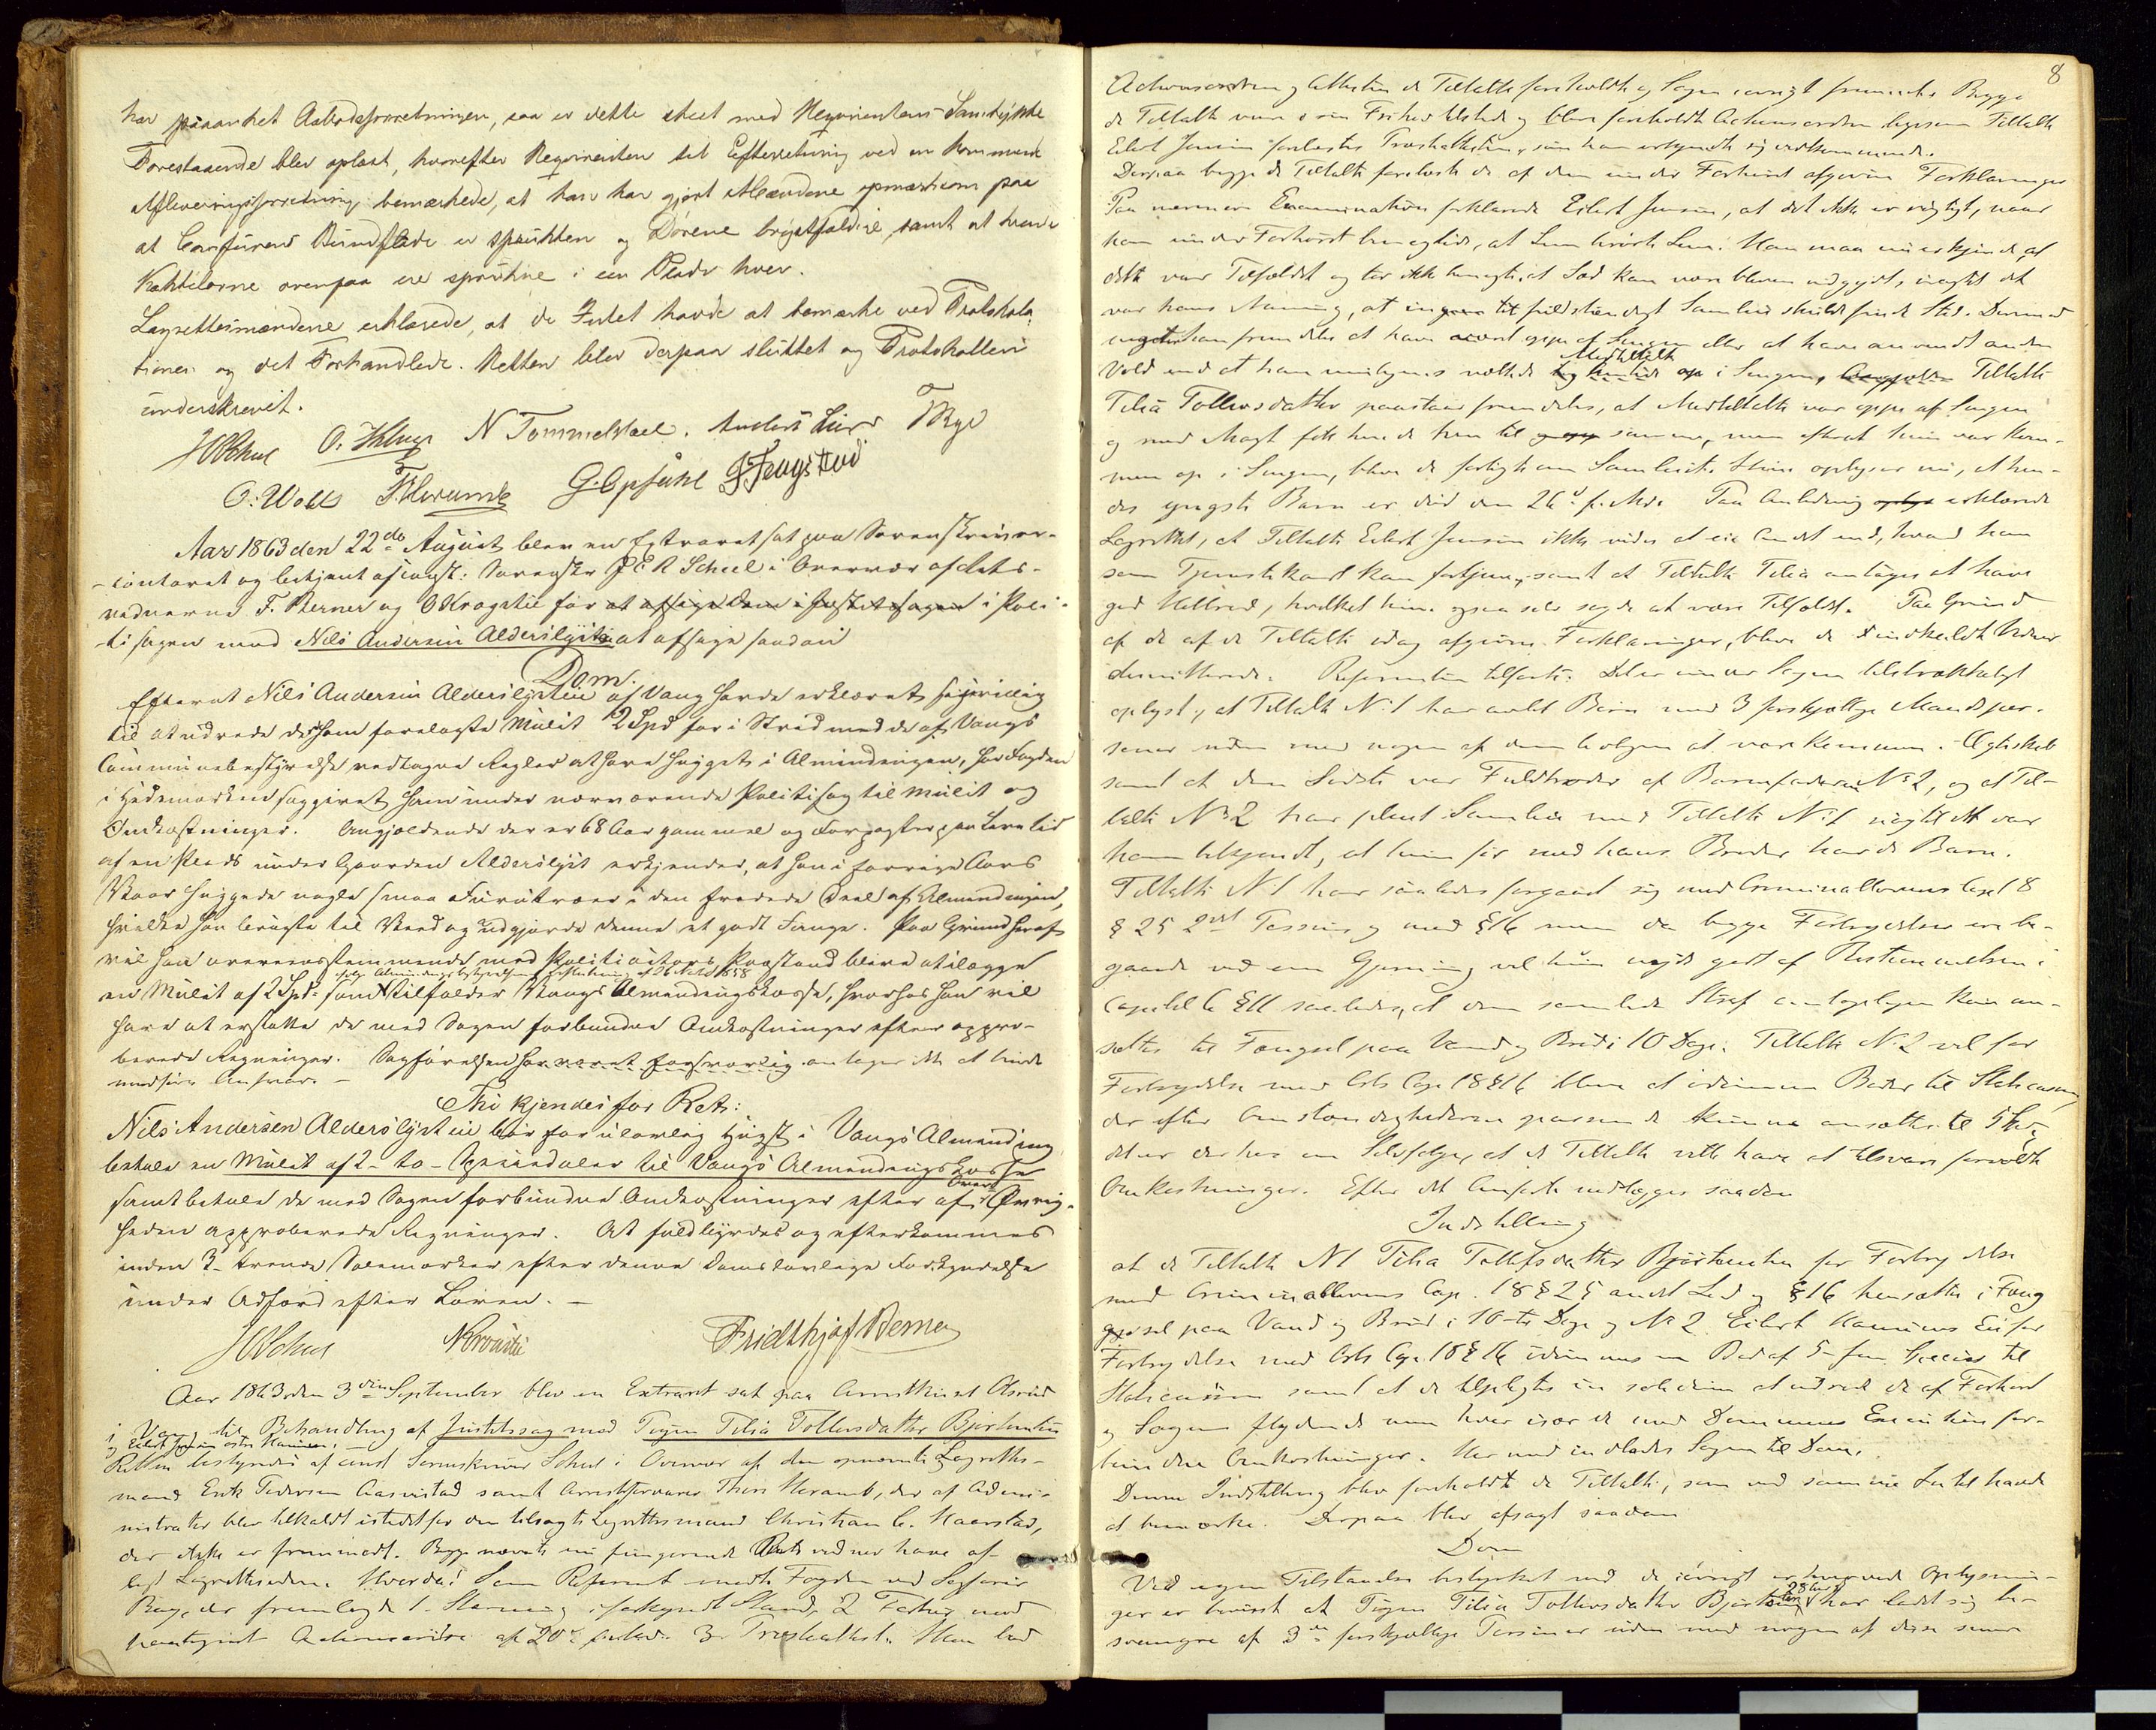 har paaanket Aabodsforretningen, saa er dette skeet med Reqvirentens Samtykke
Forestaaende blev oplæst, hvorefter Reqvirenten til Efterretning ved en kommende
Afleveringsforretning bemærkede, at han har gjort Mændene opmærksom paa
at Comfurens Bundflade er sprukken og Dørene brøstfældige, samt at hvende
Kaktilerne ovenpaa ere sprukne i een Plade hver.
Laugrettesmændene erklærede, at de Intet havde at bemærke ved Protokola-
tionen og det Forhandlede. Retten blev derpaa sluttet og Protokollen
underskrevet.
O. Kluge N Tommelstad. Anders Lier
O: Wold T. Heramb G. Opsahl J. Frogstad
Aar 1863 den 22de August blev en Extraret sat paa Sorenskriver-
contoret og betjent af const: Sorenskr P E R Scheel i Overvær af Rets-
vidnerne F. Berner og O Krogstie for at afsige Dom i Justitssagen i Poli-
tisagen mod Nils Andersen Alderslyst at afsige saadan
Dom.
Efterat Nils Andersen Alderslysteie af Vang havde erklæret sig uvillig
til at udrede den ham forelagte Mulct 2 Spd for i Strid med de af Vangs
Communebestyrelse vedtagne Regler at have hugget i Almindingen, har Fogden
i Hedemarken saggivet ham under nærværende Politisag til Mulct og
Omkostninger. Angjældende der er 68 Aar gammel og Forpagter paa Levetid
af en Plads under Gaarden Alderslyst erkjender, at han i forrige Aars
Vaar huggede nogle smaa Furutræer i den fredede Deel af Almindingen,
hvilke han brugte til Ved og udgjorde denne et godt Fange. Paa Grund heraf
vil han overeensstemmende med Politiactors Paastand blive at ilægge
en Mulct af 2 Spd: som tilfalder Vangs Almendingskasse, hvorhos han vil
have at erstatte de med Sagen forbundne Omkostninger efter appro-
berede Regninger. Sagførelsen har været forsvarlig
medføre Ansvar. –
Thi kjendes for Ret:
Nils Andersen Alderslysteie bør for ulovlig Hugst i Vangs Almending
betale en Mulct af 2 - to - Speciedaler til Vangs Almendingskasse
samt betale de med Sagen forbundne Omkostninger efter af Øvrig-
heden approberede Regninger. At fuldbyrdes og efterkommes
inden 3 - trende Solemærker efter denne Doms lovlige Forkyndelse
under Adfærd efter Loven. –
Fridthjof Berner
Aar 1863 den 3die September blev en Extraret sat paa Arresthuset Olsrud
i Vang til Behandling af Justitssag mod Pigen Tilia Tollevsdatter Bjørtuneie
Retten bestyredes af const Sorenskriver Scheel i Overvær af den opnævnte Lagrettes-
mand Erik Pedersen Aasvistad samt Arrestforvarer Thor Heramb, der af Admi-
nistrator blev tilkaldt istedetfor den tilsagte Lagrettesmand Christian C. Haarstad,
der ikke er fremmødt. Begge nævnte nu fungerende Retsvidner have af-
lagt Lagrettesed. Hvorda! Som Referent mødte Fogden ved
der fremlagde 1. Stævning i forkyndt Stand, 2 Forhør med
paategnet Actionsordre af 20de 3. Præsteattest. Han lod
8
Actionsordren og Attesten de Tiltalte foreholdt og Sagen iøvrigt fremmede. Begge
de Tiltalte vare i sin Frihed tilstede og blev foreholdt Actionsordren ligesom Tiltalte
Eilert Jensen forelæstes Præsteattesten, som han erkjendte sig vedkommende.
Derpaa begge de Tiltalte forelæst de af dem under Forhøret afgivne Forklaringer
Paa nærmere Examination forklarede Eilert Jensen, at det ikke er rigtigt, naar
han under Forhøret benegtede, at
dette var Tilfældet og tør ikke benegte, at Sæd kan være bleven udgydt, uagtet det
var hans Mening, at ingen fuldstændigt Samleie skulde finde Sted. Dermed
negter han fremdeles at have været oppe af Sengen eller at have anvendt anden
Vold end at han veltede Medtiltalte i Sengen, Tiltalte
Tilia Tollevsdatter paastaar fremdeles, at Medtiltalte var oppe af Sengen
og med Magt fik hende hen til samme, men efterat hun var kom-
men op i Sengen, blev de færdige om Samleiet. Hun oplyser nu, at hen-
des yngste Barn er død den 26de f. Md. Paa Anledning erklærede
Lagrettet, at Tiltalte Eilert Jensen ikke vides at eie Andet end, hvad han
som Tjenestekarl kan fortjene, samt at Tiltalte Tilia antages at have
god Helbred, hvilket hun ogsaa selv sagde at være Tilfældet. Paa Grund
af de af de Tiltalte idag afgivne Forklaringer, blev de indkaldte Vidner
demitterede. Referenten tilførte: Det er under Sagen tilstrækkeligt
oplyst, at Tiltalte No 1 har avlet Børn med 3 forskjellige Mandsper-
soner uden med nogen af dem bevisligen at være kommen i Ægteskab
samt at den Sidste var Fuldbroder af Barnefaderen No 2, og at Til-
talte No 2 har pleiet Samleie med Tiltalte No 1 uagtet det var
ham bekjendt, at hun før med hans Broder havde Barn.
Tiltalte No 1 har saaledes forgaaet sig mod Criminallovens Cap 18
§ 25 2det Passus og mod § 16 men da begge Forbrydelser ere be-
gaaede ved een Gjerning vil hun nyde godt af Bestemmelsen i
Capitel 6 § 11 saaledes, at den samlede Straf antageligen kan an-
sættes til Fængsel paa Vand og Brød i 10 Dage. Tiltalte No 2 vil for
Forbrydelse mod Crls Cap 18 § 16 blive at idømme Bøder til Statscassen,
der efter Omstændighederne passende kunne ansættes til 5 Spd,
det er derhos en Selvfølge, at de Tiltalte ville have at tilsvare forvoldte
Omkostninger. Efter det Anførte nedlægges saadan
Indstilling
at de Tiltalte No 1 Tilia Tollefsdatter Bjørtuneie for Forbrydelse
mod Criminallovens Cap. 18 § 25 andet Led og § 16 hensættes i Fæng
sel paa Vand og Brød i 10 - ti Dage og No 2 Eilert Hanemes Eie for
Forbrydelse mod Crls Cap 18 § 16 idømmes en Bod af 5 - fem Species til
Statscassen samt at de tilpligtes in solidum at udrede de af Forhør
og Sagen flydende men hver især de med Dommens Execution for-
bundne Omkostninger. Hermed indlades Sagen til Dom.
Denne Indstilling blev foreholdt de Tiltalte, som ved samme Intet havde
at bemærke. Derpaa blev afsagt saadan
Dom
Ved egen Tilstaaelse bestyrket ved de iøvrigt erhvervede Oplysnin-
ger er bevist at Pigen Tilia Tollevsdatter Bjørtuneie 28 Aar har ladet sig be-
svangre af 3de forskjellige Personer uden med nogen af disse senere